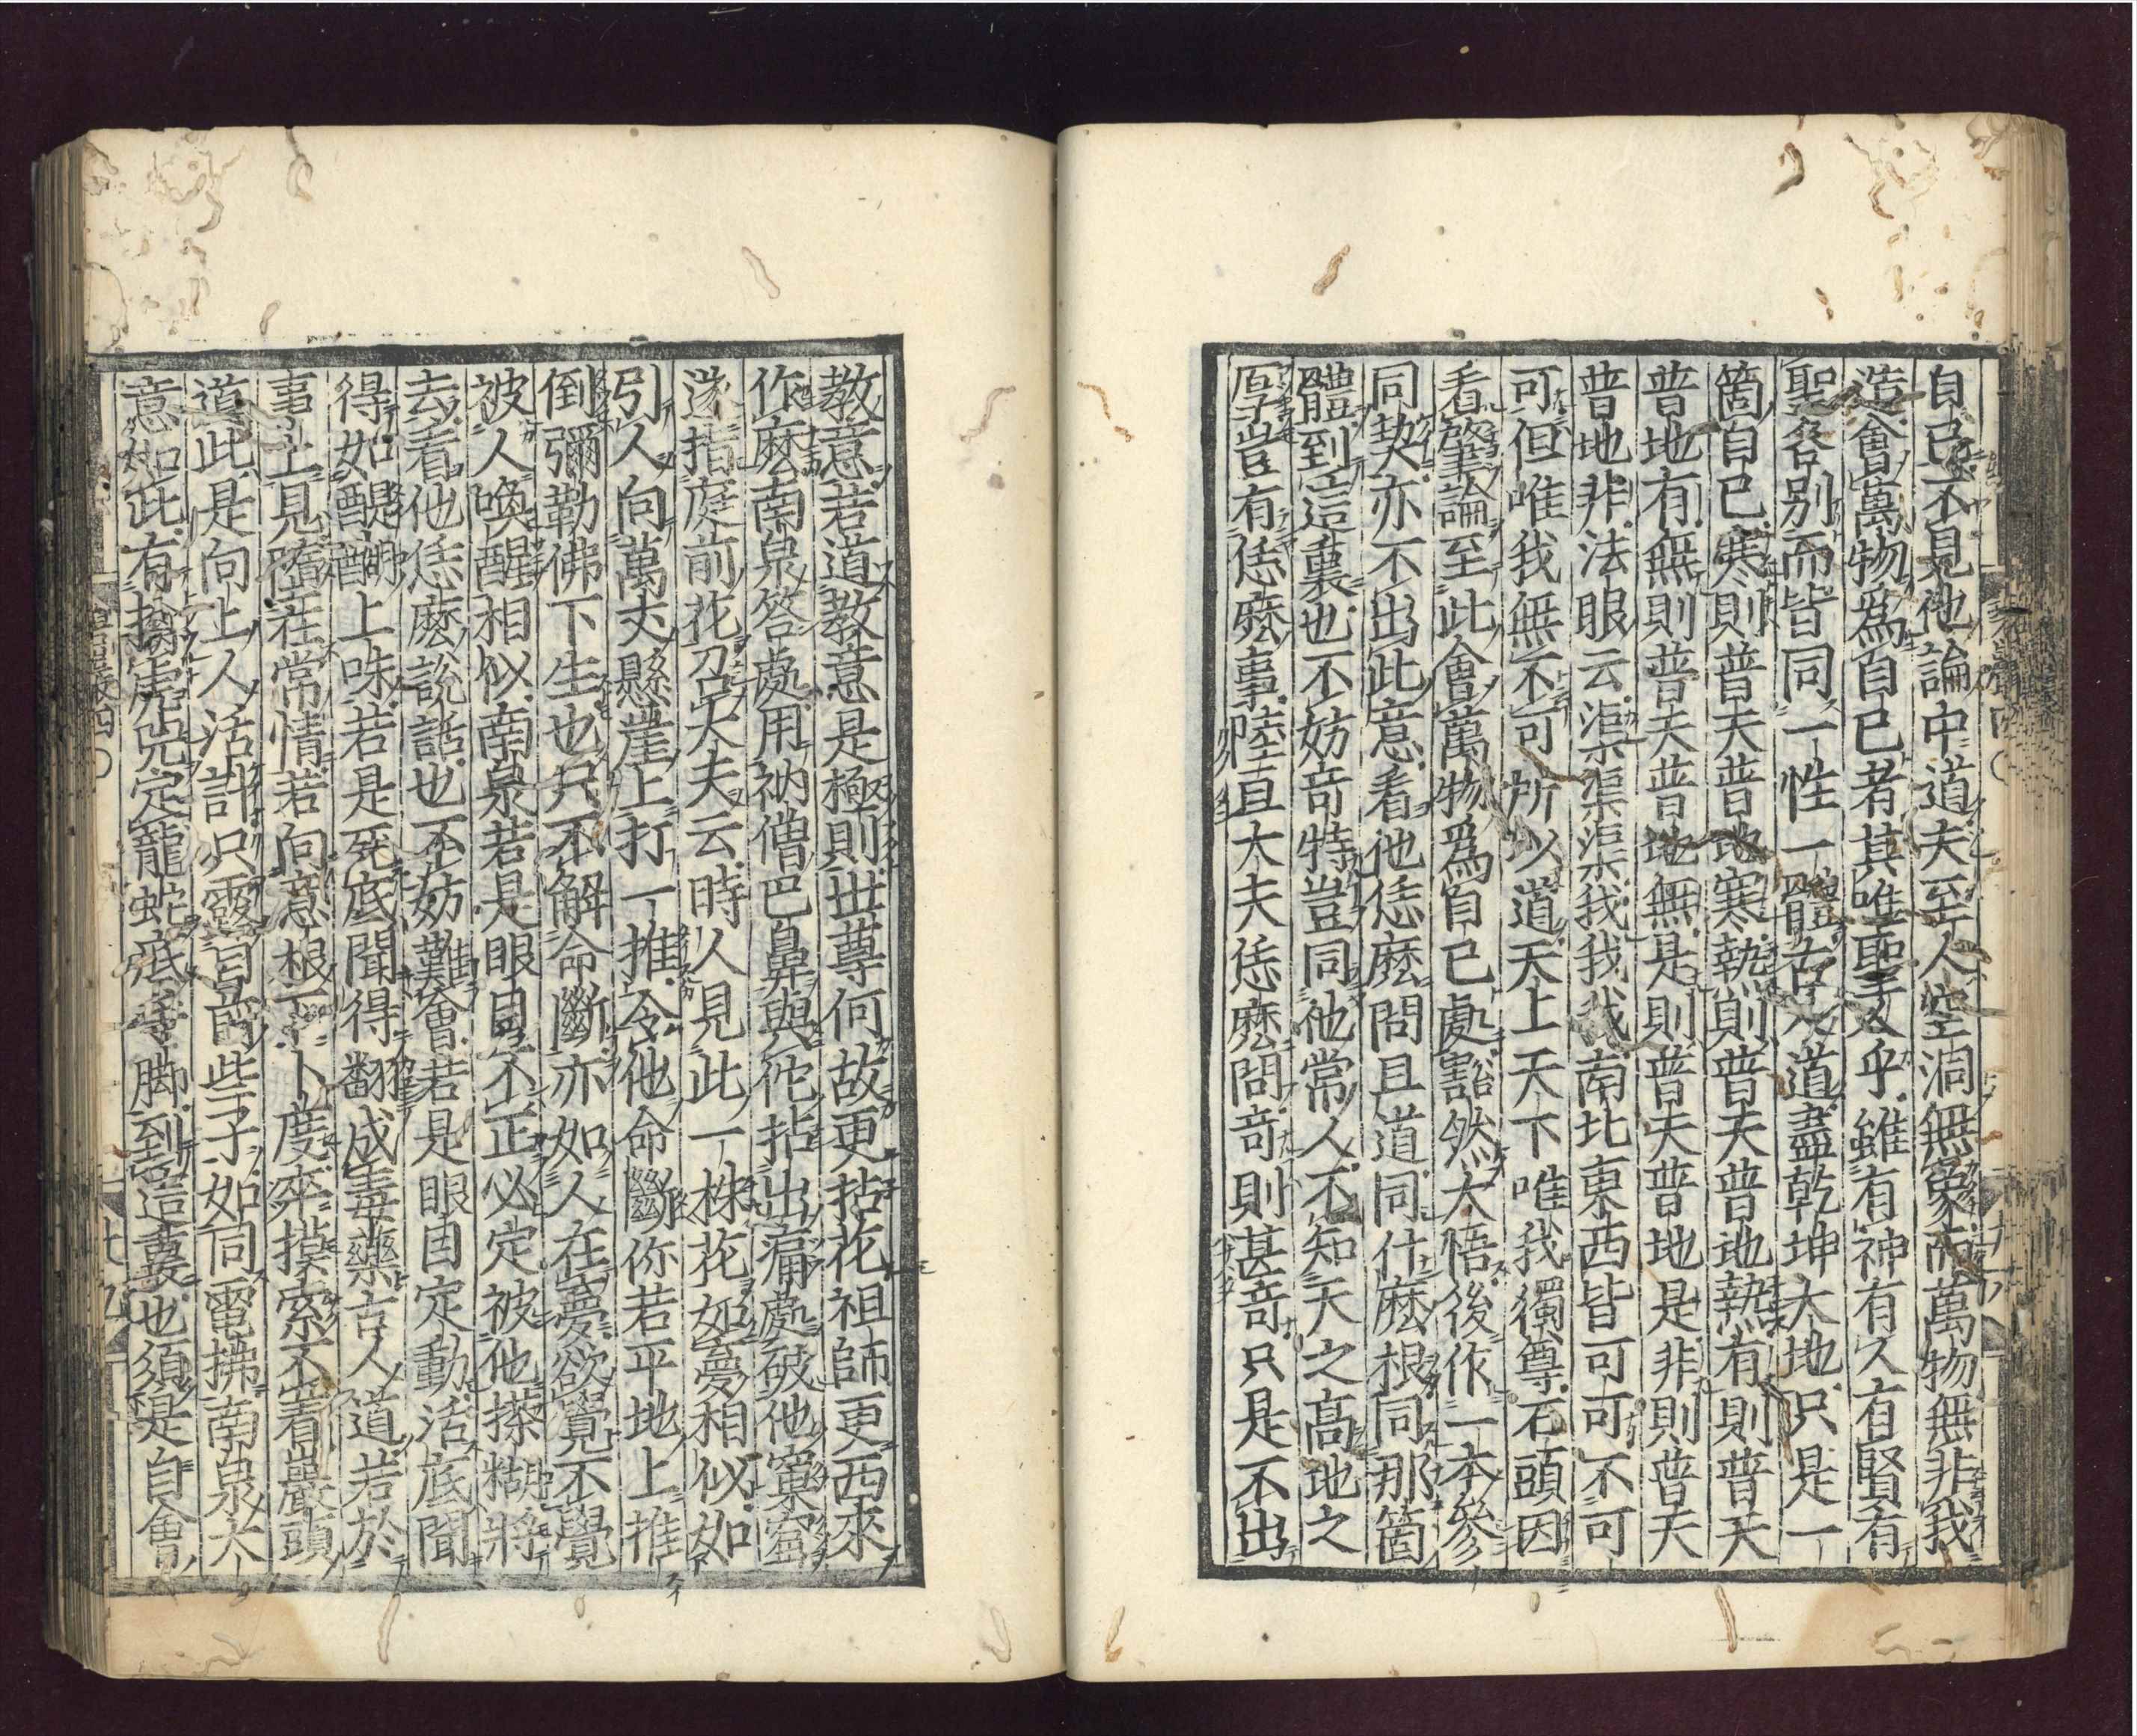 自己不見他論中道夫至人空洞無象而萬物無非我
造會萬物爲自己者其唯聖人乎雖有神有人有賢有
聖各別而皆同一性一體古人道盡乾坤大地只是一
箇自己寒則普天普地寒熱則普天普地熱有則普天
普地有無則普天普地無是則普天普地是非則普天
普地非法眼云渠渠渠我我我南北東西皆可可不可
可但唯我無不可所以道天上天下唯我獨尊石頭因
看肇論至此會萬物爲自己處豁然大悟後作一本參
同契亦不出此意看他恁麽問且道同什麽根同那箇
體到這裏也不妨奇特豈同他常人不知天之高地之
厚豈有恁麽事陸亘大夫恁麽問奇則甚奇只是不出
教意若道教意是極則世尊何故更拈花祖師更西來
作麽南泉答處用衲僧巴鼻與佗拈出痛處破他窠窟
遂指庭前花召大夫云時人見此一株花如夢相似如
引人向萬丈懸崖上打一推令他命斷你若平地上推
倒彌勒佛下生也只不解命斷亦如人在夢欲覺不覺
被人喚醒相似南泉若是眼目不正必定被他搽糊將
去看他恁麽說話也不妨難會若是眼目定動活底聞
得如醍醐上味若是死底聞得翻成毒藥古人道若於
事上見墮在常情若向意根下卜度卒摸索不著巖頭
道此是向上人活計只露目前些子如同電拂南泉大
意如此有擒虎兕定龍蛇底手脚到這裏也須是自會